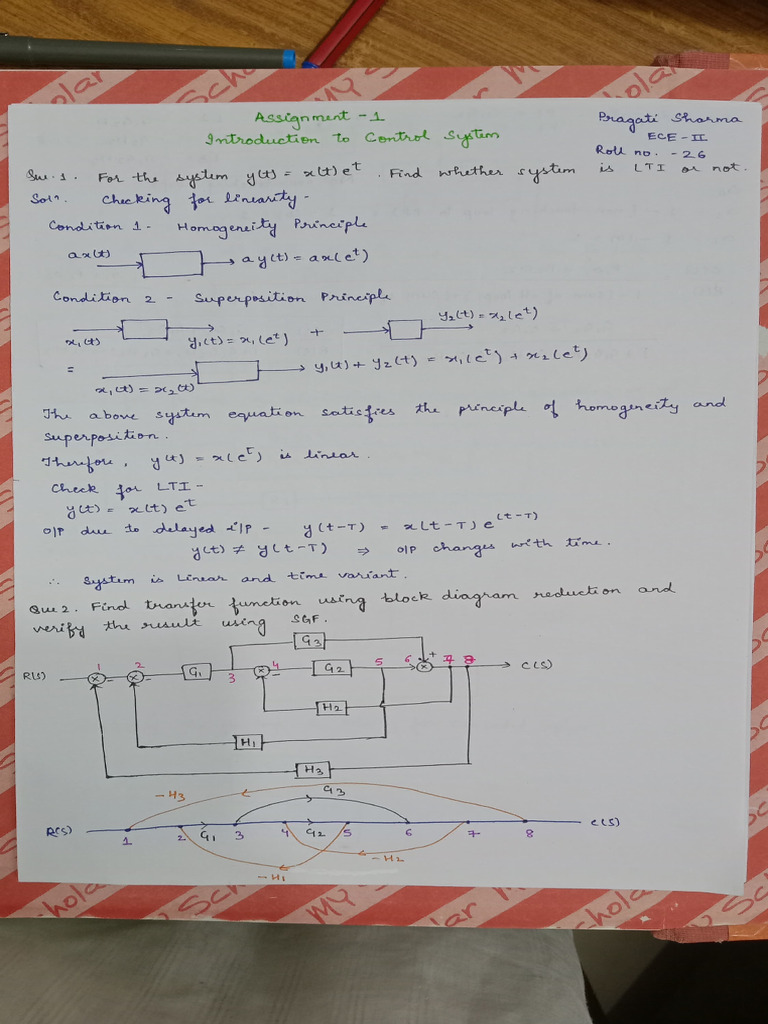 Assignment - 1
Introduction to Control System
Pragati Sharma
ECE - II
Roll no. - 26
Que. 1. For the system y(t) = x(t) e^t . Find whether system is LTI or not.
Solⁿ. Checking for linearity -
Condition 1 - Homogeneity Principle
ax(t) → ay(t) = ax(e^t)
Condition 2 - Superposition Principle
x₁(t) y₁(t) = x₁(e^t) + y₂(t) = x₂(e^t)
= x₁(t) = x₂(t) → y₁(t) + y₂(t) = x₁(e^t) + x₂(e^t)
The above system equation satisfies the principle of homogeneity and
superposition.
Therefore, y(t) = x(e^t) is linear.
Check for LTI -
y(t) = x(t) e^t
O/P due to delayed i/p - y(t-T) = x(t-T) e^(t-T)
y(t) ≠ y(t-T) ⇒ O/P changes with time.
∴ System is Linear and time variant.
Que 2. Find transfer function using block diagram reduction and
verify the result using SGF.
G3
R(s) 1 2 G1 3 4 G2 5 6 + 7 8 C(s)
H2
H1
H3
-H3 G3
R(s) 1 2 G1 3 4 G2 5 6 7 8 C(s)
-H2
-H1
MY Scholar